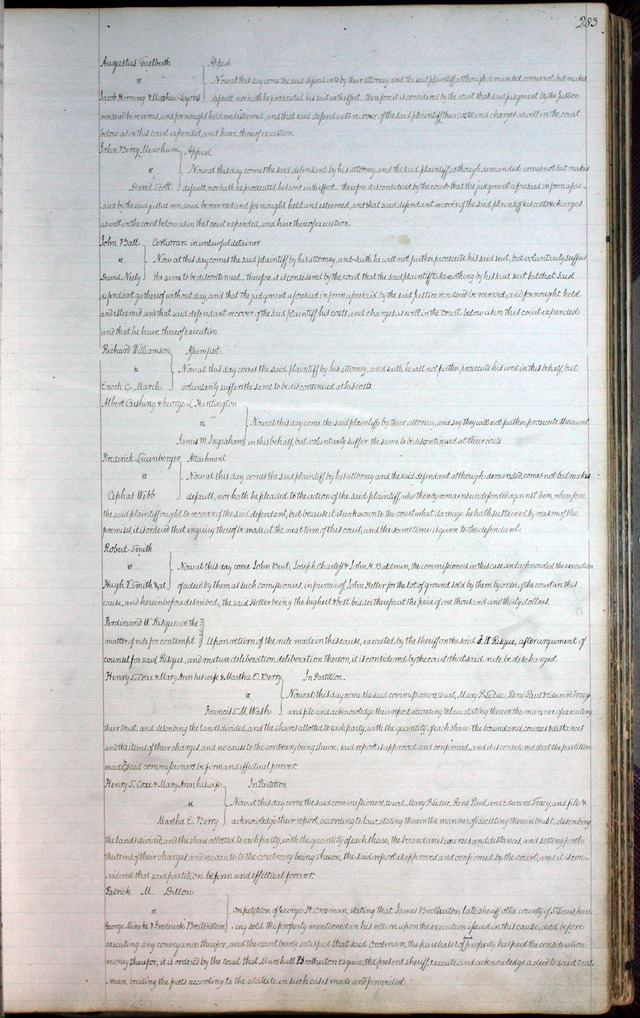 283
Augustus Guelberth } Appeal
vs Now at this day come the said defendants by their attorney and the said plaintiff although demanded, comes not but makes
Jacob Horning & Matthew Lyons default, nor hath he prosecuted his suit with effect. therefore it is considered by the court that said judgment by the Justice
rendered be reversed, and for nought held and esteemed, and that said defendants recover of the said plaintiff their costs and charges as well in the court
below as in this court expended, and have thereof execution.
John Berry Meachum } Appeal
vs Now at this day comes the said defendant by his attorney and the said plaintiff although demanded, comes not but makes
David Scott default, nor hath he prosecuted his suit with effect. Therefore it is considered by the court that the judgment aforesaid in form afore-
said by the said justice rendered be reversed and for nought held and esteemed, and that said defendant recover of the said plaintiff his costs & charges
as well in the court below as in this court expended, and have thereof execution.
John Ball } Certiorari in unlawful detainer
vs Now at this day comes the said plaintiff by his attorney, and saith he will not further prosecute his said suit, but voluntarily suffers
David Neely the same to be discontinued. therefore it is considered by the court that the said plaintiff take nothing by his said suit but that said
defendant go thereof without day, and that the judgment aforesaid in form aforesaid by the said Justice rendered be reversed, and for nought held
and esteemed and that said defendant recover of the said plaintiff his costs and charges as well in the court below as in this court expended
and that he have thereof execution.
Richard Williamson } Assumpsit
vs Now at this day comes the said plaintiff by his attorney, and saith he will not further prosecute his writ in this behalf, but
Enoch C. March voluntarily suffers the same to be discontinued at his costs.
Albert Cushing & George L. Huntington
vs } Now at this day come the said plaintiffs by their attorney, and say they will not further prosecute their writ
James M. Ingraham in this behalf but voluntarily suffer the same to be discontinued at their costs
Frederick Leuenberger } Attachment
vs Now at this day comes the said plaintiff by his attorney and the said defendant although demanded, comes not but makes
Cephas Webb default, nor hath he pleaded to the action of the said plaintiff who thereby remains undefended against him, wherefore
the said plaintiff ought to recover of the said defendant, but because it is unknown to the court what damage he hath sustained by reason of the
premises, it is ordered that inquiry thereof be made at the next term of this court, and the same time is given to the defendant.
Robert Smith
vs } Now at this day come John Bent, Joseph Charless & John H. Baldwin, the commissioners in this case and acknowledged the execution
Hugh Smith & al of a deed by them as such commissioners, in favour of John Heller for the lot of ground sold by them by order of the court in this
cause, and herein before described, the said Heller being the highest & best bidder thereof at the price of one thousand and thirty dollars.
Ferdinand W. Risque in the
matter of rule for contempt } Upon return of the rule made in this cause, executed by the sheriff on the said F. W. Risque, after argument of
counsel for said Risque, and mature deliberation deliberation thereon, it is considered by the court that said rule be discharged
Henry S. Coxe & Mary Ann his wife & Martha E. Berry } In Partition.
vs Now at this day come the said commissioners towit, Mary P. Leduc, René Paul & Edward Tracy
Francis M. Wash and file and acknowledge their report according to law, stating therein the manner of executing
their trust, and describing the lands divided, and the shares allotted to each party, with the quantity of each share, the boundaries courses & distances
and the items of their charges and no cause to the contrary being shewn; said report is approved and confirmed, and it is considered that the partition
made by said commissioners be firm and effectual forever.
Henry S. Coxe & Mary Ann his wife } In Partition
vs Now at this day come the said commissioners, towit, Mary P. Leduc, René Paul, and Edward Tracy, and file &
Martha E. Berry acknowledge their report, according to law, stating therein the manner of executing their trust, describing
the lands divided, and the share allotted to each party, with the quantity of each share, the boundaries courses and distances, and setting forth
the items of their charges and no cause to the contrary being shewn, the said report is approved and confirmed by the court, and it is con-
sidered that said partition be firm and effectual forever.
Patrick M. Dillon
vs } On petition of George H. Crosman, stating that James Brotherton late sheriff of the county of St Louis hav-
George Mincke & Frederick Breitenstein ing sold the property mentioned in his return upon the execution issued in this cause, died before
executing any conveyance therefor, and the court being satisfied that said Crosman, the purchaser of property has paid the consideration
money therefor, it is ordered by the court that Marshall Brotherton esquire, the present sheriff, execute and acknowledge a deed to said Cros-
man reciting the facts according to the statute in such cases made and provided.